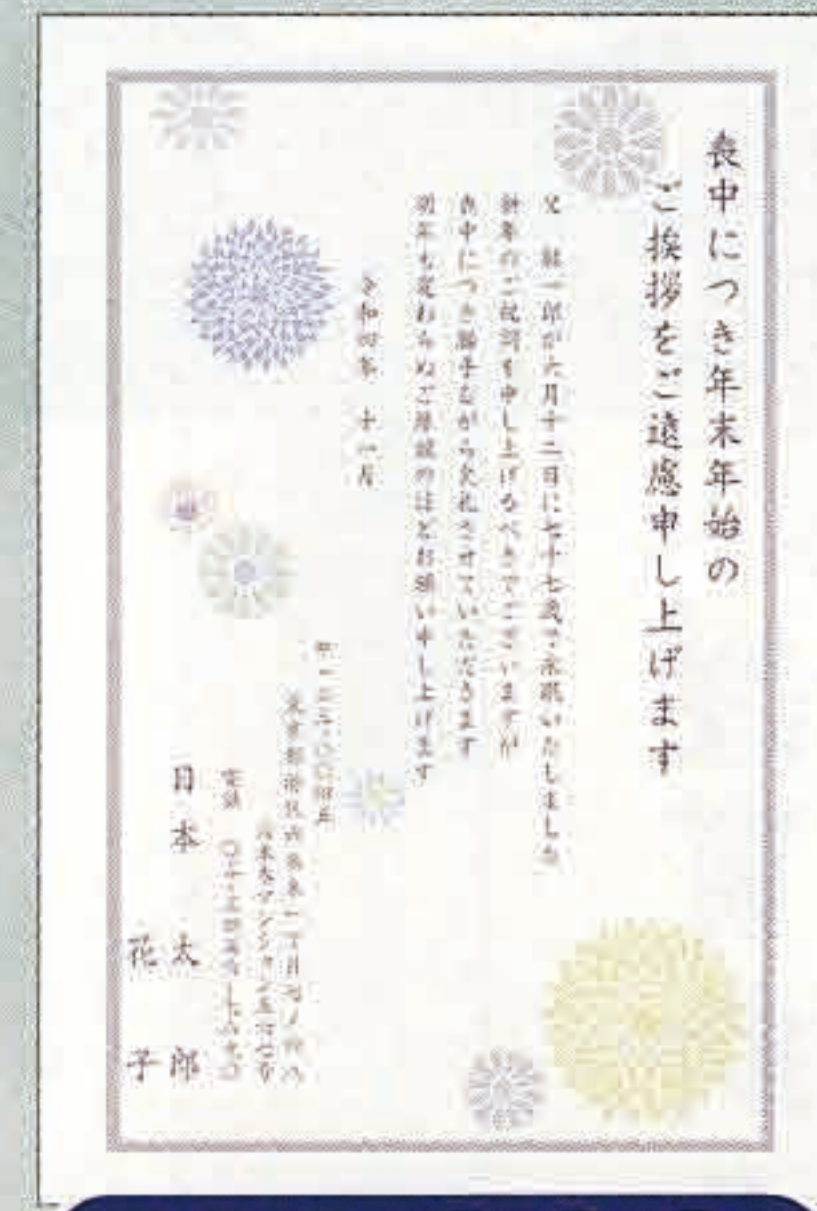 喪中につき年末年始の
ご挨拶をご遠慮申し上げます
父 一郎が六月十二日に七十七歳で永眠いたしました
新年のご祝詞を申し上げるべきでございますが
喪中につき勝手ながら欠礼させていただきます
明年も変わらぬご厚誼のほどお願い申し上げます
令和四年 十一月
東京都港区六本木
六本木マンション
電話
日本 太郎
花子